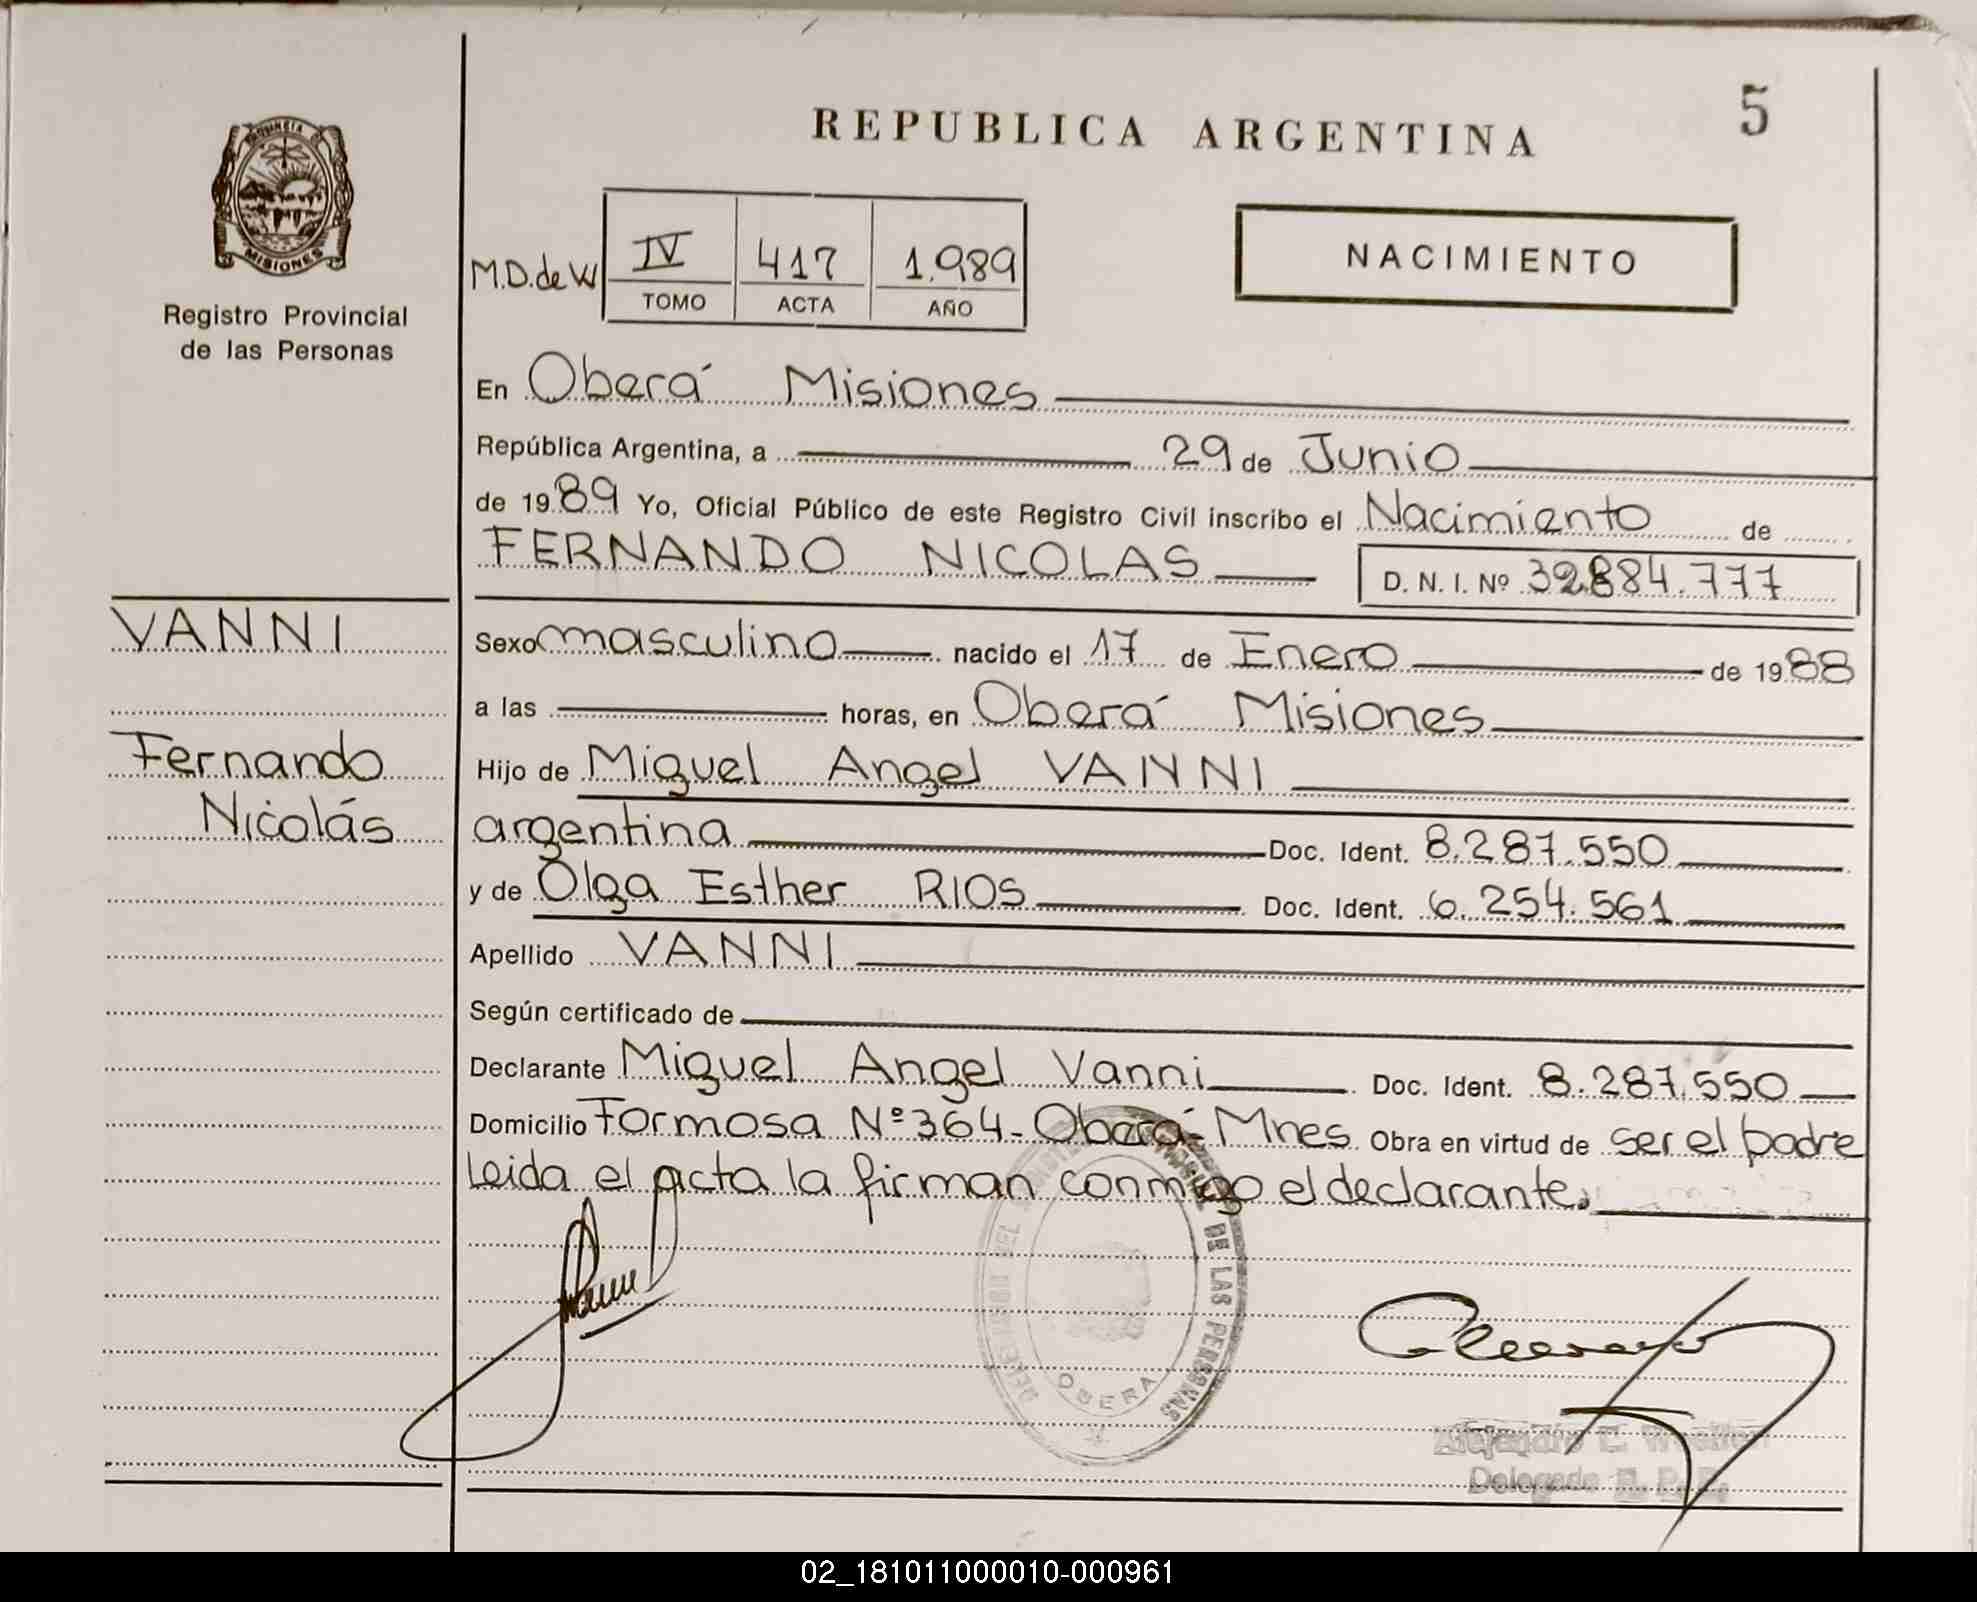 5
REPUBLICA ARGENTINA
PROVINCIA
MISIONES
Registro Provincial
de las Personas
M.D.de W IV 417 1.989
TOMO ACTA AÑO
NACIMIENTO
En Oberá Misiones
República Argentina, a 29 de Junio
de 1989 Yo, Oficial Público de este Registro Civil inscribo el Nacimiento de
FERNANDO NICOLAS D. N. I. Nº 32.884.777
VANNI
Sexo masculino nacido el 17 de Enero de 1988
a las horas, en Oberá Misiones
Fernando
Nicolás
Hijo de Miguel Angel VANNI
argentina Doc. Ident. 8.287.550
y de Olga Esther RIOS Doc. Ident. 6.254.561
Apellido VANNI
Según certificado de
Declarante Miguel Angel Vanni Doc. Ident. 8.287.550
Domicilio Formosa Nº 364- Oberá- Mnes. Obra en virtud de ser el padre
Leida el acta la firman conmigo el declarante.
DE LAS PERSONAS
OBERA
Delegado R. P. P.
02_181011000010-000961